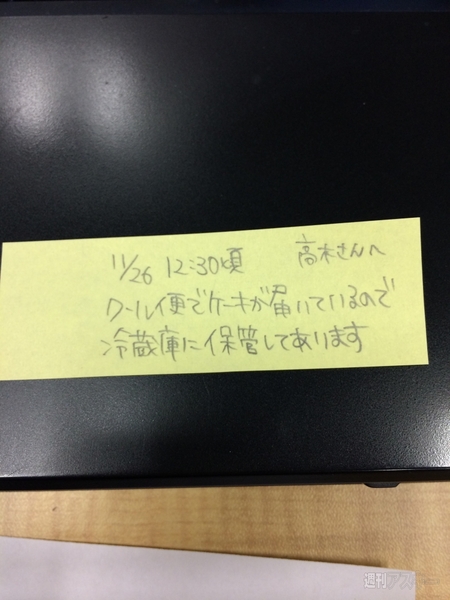 11/26 12:30頃 高木さんへ
クール便でケーキが届いているので
冷蔵庫に保管してあります
週刊アスキー